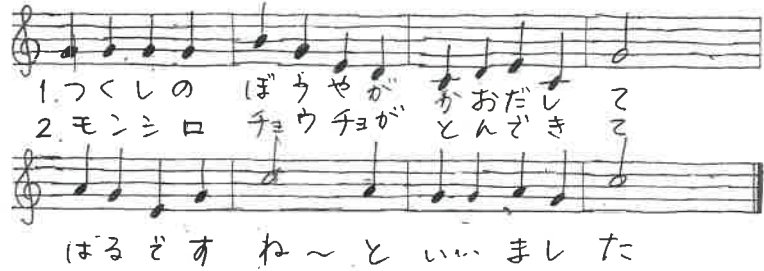 1.つくしの ぼうやが かおだし て
2.モンシロ チョウチョが とんでき て
はるです ね〜と いいました